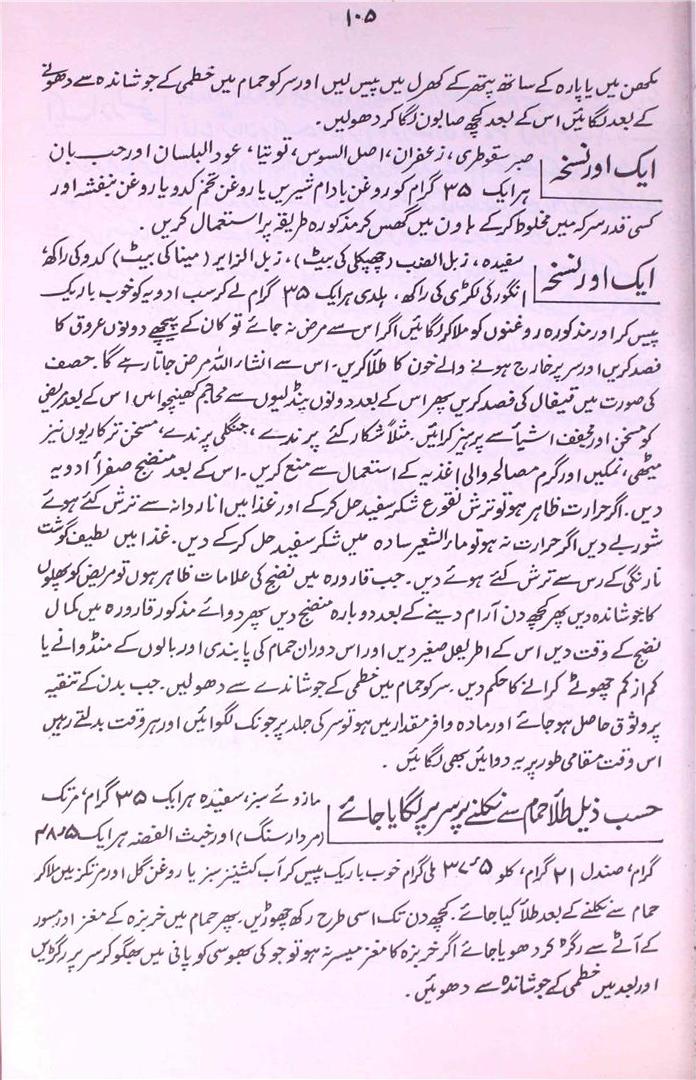 ۱۰۵
مکھن میں یا پارہ کے ساتھ پتھر کے کھرل میں پیس لیں اور سر کو حمام میں خطمی کے جوشاندہ سے دھونے
کے بعد لگائیں اس کے بعد کچھ صابون لگا کر دھولیں۔
ایک اور نسخہ
صبر سقوطری، زعفران، اصل السوس، توتیا، عود البلسان اور حب بان
ہر ایک ۳۵ گرام کو روغن بادام شیریں یا روغن تخم کدو یا روغن بنفشہ اور
کسی قدر سرکہ میں مخلوط کر کے ہاون میں گھس کر مذکورہ طریقہ پر استعمال کریں۔
ایک اور نسخہ
سفیدہ، زبل الضب (چھپکلی کی بیٹ)، زبل الزایر (مینا کی بیٹ) کدو کی راکھ،
انگور کی لکڑی کی راکھ، ہلدی ہر ایک ۳۵ گرام لے کر سب ادویہ کو خوب باریک
پیس کر اور مذکورہ روغنوں کو ملا کر لگائیں اگر اس سے مرض نہ جائے تو کان کے پیچھے دونوں عروق کا
فصد کریں اور سر پر خارج ہونے والے خون کا طلاٗ کریں۔ اس سے انشاء اللہ مرض جاتا رہے گا۔ حصف
کی صورت میں قیفال کی فصد کریں پھر اس کے بعد دونوں پنڈلیوں سے محاجم کھینچوائیں اس کے بعد مریض
کو مسخن اور مجفف اشیاٗ سے پرہیز کرائیں۔ مثلاً شکار کئے پرندے، جنگلی پرندے، مسخن ترکاریوں نیز
میٹھی، نمکیں اور گرم مصالحہ والی اغذیہ کے استعمال سے منع کریں۔ اس کے بعد منضج صفراٗ ادویہ
دیں۔ اگر حرارت ظاہر ہو تو ترش نقوع شکر سفید حل کر کے اور غذا میں انار دانہ سے ترش کئے ہوئے
شوربے دیں اگر حرارت نہ ہو تو مار الشعیر سادہ میں شکر سفید حل کر کے دیں۔ غذا میں لطیف گوشت
نارنگی کے رس سے ترش کئے ہوئے دیں۔ جب قارورہ میں نضج کی علامات ظاہر ہوں تو مریض کو پھلوں
کا جوشاندہ دیں پھر کچھ دن آرام دینے کے بعد دوبارہ منضج دیں پھر دوائے مذکور قارورہ میں کمال
نضج کے وقت دیں اس کے اطریفل صغیر دیں اور اس دوران حمام کی پابندی اور بالوں کے منڈوانے یا
کم از کم چھوٹے کرانے کا حکم دیں۔ سر کو حمام میں خطمی کے جوشاندے سے دھولیں۔ جب بدن کے تنقیہ
پر وثوق حاصل ہو جائے اور مادہ وافر مقدار میں ہو تو سر کی جلد پر جونک لگوائیں اور ہر وقت بدلتے رہیں
اس وقت مقامی طور پر یہ دوائیں بھی لگائیں۔
حسب ذیل طلاٗ حمام سے نکلنے پر سر پر لگایا جائے
مازوئے سبز، سفیدہ ہر ایک ۳۵ گرام، مرتک
(مردار سنگ) اور خبث الفضہ ہر ایک ۴۸٫۵
گرام، صندل ۲۱ گرام، کلو ۳۷٫۵ ملی گرام خوب باریک پیس کر آب کشنیز سبز یا روغن گل اور مرتکز میں ملا کر
حمام سے نکلنے کے بعد طلاٗ کیا جائے۔ کچھ دن تک اسی طرح رکھ چھوڑیں۔ پھر حمام میں خربزہ کے مغز اور مسور
کے آٹے سے رگڑ کر دھویا جائے اگر خربزہ کا مغز میسر نہ ہو تو جو کی بھوسی کو پانی میں بھگو کر سر پر رگڑیں
اور بعد میں خطمی کے جوشاندہ سے دھوئیں۔